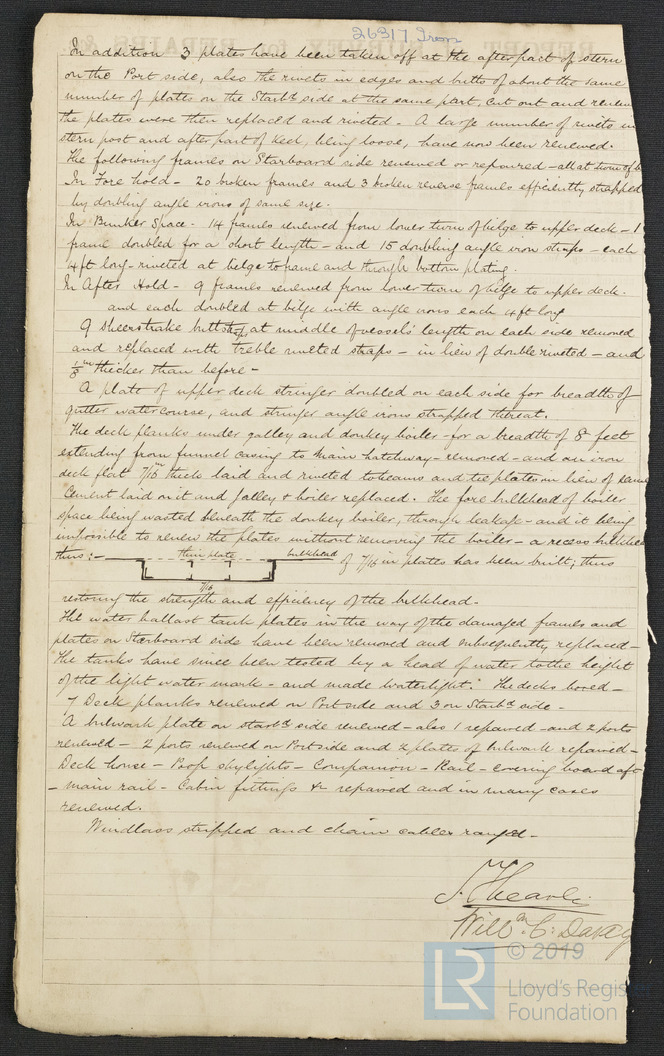 26317 Iron
In addition 3 plates have been taken off at the after part of stern
on the Port side, also the rivets in edges and butts of about the same
number of plates on the Starbd side at the same part, cut out and renew
the plates were then replaced and riveted - A large number of rivets in
stern post and after part of keel, being loose, have now been renewed.
The following frames on Starboard side renewed or repaired - all at turn of b
In Fore hold - 20 broken frames and 3 broken reverse frames efficiently strapped
by doubling angle irons of same size.
In Bunker Space - 14 frames renewed from lower turn of bilge to upper deck - 1
frame doubled for a short length - and 15 doubling angle iron straps - each
4 ft long - riveted at bilge to frame and through bottom plating.
In After Hold - 9 frames renewed from lower turn of bilge to upper deck -
and each doubled at bilge with angle irons each 4 ft long
9 Sheerstrake butt straps at middle of vessels' length on each side removed
and replaced with treble riveted straps - in lieu of double riveted - and
1/8 in thicker than before -
A plate of upper deck stringer doubled on each side for breadth of
gutter watercourse, and stringer angle irons strapped thereat.
The deck planks under galley and donkey boiler - for a breadth of 8 feet
extending from funnel casing to main hatchway - removed - and an iron
deck flat 7/16 in thick laid and riveted to beams and tie plates in lieu of same
Cement laid on it and Galley & boiler replaced. The fore bulkhead of boiler
space being wasted beneath the donkey boiler, through leakage - and it being
impossible to renew the plates without removing the boiler - a recess bulkhea
thus: - thin plate bulkhead of 7/16 in plates has been built; thus
7/16
restoring the strength and efficiency of the bulkhead -
The water ballast tank plates in the way of the damaged frames and
plates on Starboard side have been removed and subsequently replaced -
The tanks have since been tested by a head of water to the height
of the light water mark - and made watertight. The decks bored -
7 Deck planks renewed on Port side and 3 on Starbd side -
A bulwark plate on starbd side renewed - also 1 repaired - and 2 ports
renewed - 2 ports renewed on Port side and 2 plates of bulwark repaired -
Deck house - Poop skylights - Companion - Rail - covering board aft
- main rail - Cabin fittings &c repaired and in many cases
renewed.
Windlass stripped and chain cables ranged -
Willm C: Davey
© 2019
LR
Lloyd's Register
Foundation